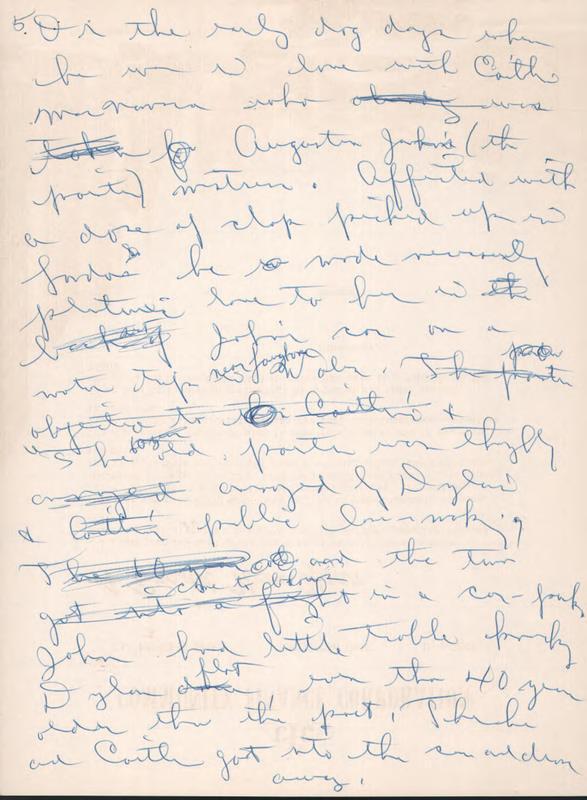 5. D in the early dog days when
he was in love with Caitlin
Macnamara who was
Augustus John's (the
painter) mistress. Affected with
a dose of clap picked up in
London he made
platonic love to her in
John's car on a
motor trip near Wales. The
objected to Caitlin's &
She old painter was
annoyed by Dylan's
& Caitlin public love-making,
and the two
close to blows
got into a fight in a car-park,
John had little trouble
Dylan flat even tho 40 years
older than the poet. Then he
and Caitlin got into the car and drove
away.